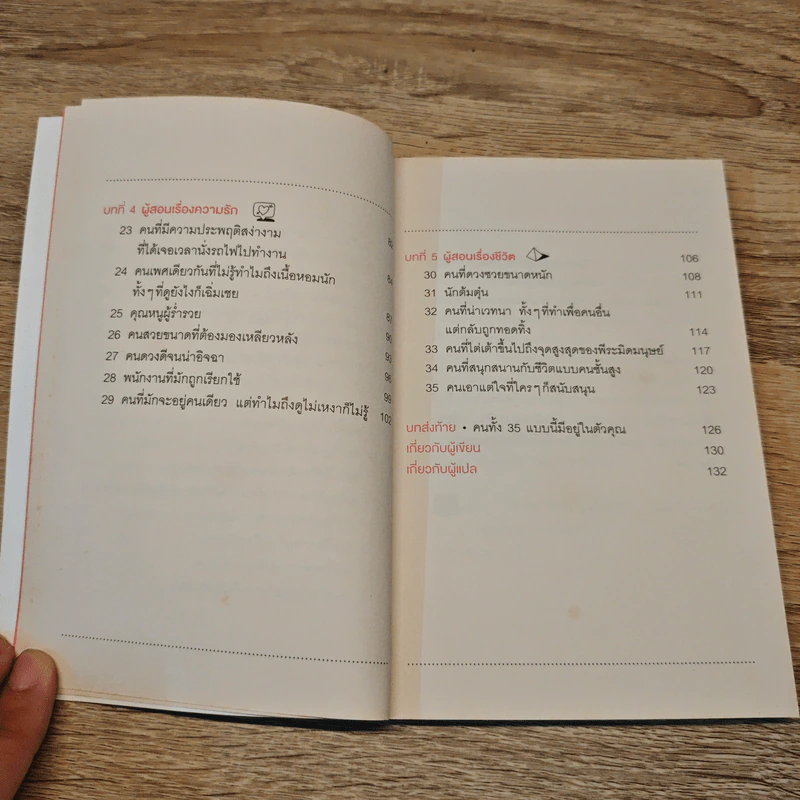 บทที่ 4 ผู้สอนเรื่องความรัก
23 คนที่มีความประพฤติสง่างาม
ที่ได้เจอเวลานั่งรถไฟไปทำงาน
24 คนเพศเดียวกันที่ไม่รู้ทำไมถึงเนื้อหอมนัก
ทั้งๆที่ดูยังไงก็เฉิ่มเชย 84
25 คุณหนูผู้ร่ำรวย
26 คนสวยขนาดที่ต้องมองเหลียวหลัง 90
27 คนดวงดีจนน่าอิจฉา 93
28 พนักงานที่มักถูกเรียกใช้ 96
29 คนที่มักจะอยู่คนเดียว แต่ทำไมถึงดูไม่เหงาก็ไม่รู้ 99
102
บทที่ 5 ผู้สอนเรื่องชีวิต 106
30 คนที่ดวงซวยขนาดหนัก 108
31 นักต้มตุ๋น 111
32 คนที่น่าเวทนา ทั้งๆที่ทำเพื่อคนอื่น
แต่กลับถูกทอดทิ้ง 114
33 คนที่ไต่เต้าขึ้นไปถึงจุดสูงสุดของพีระมิดมนุษย์ 117
34 คนที่สนุกสนานกับชีวิตแบบคนชั้นสูง 120
35 คนเอาแต่ใจที่ใครๆก็สนับสนุน 123
บทส่งท้าย • คนทั้ง 35 แบบนี้มีอยู่ในตัวคุณ 126
เกี่ยวกับผู้เขียน 130
เกี่ยวกับผู้แปล 132